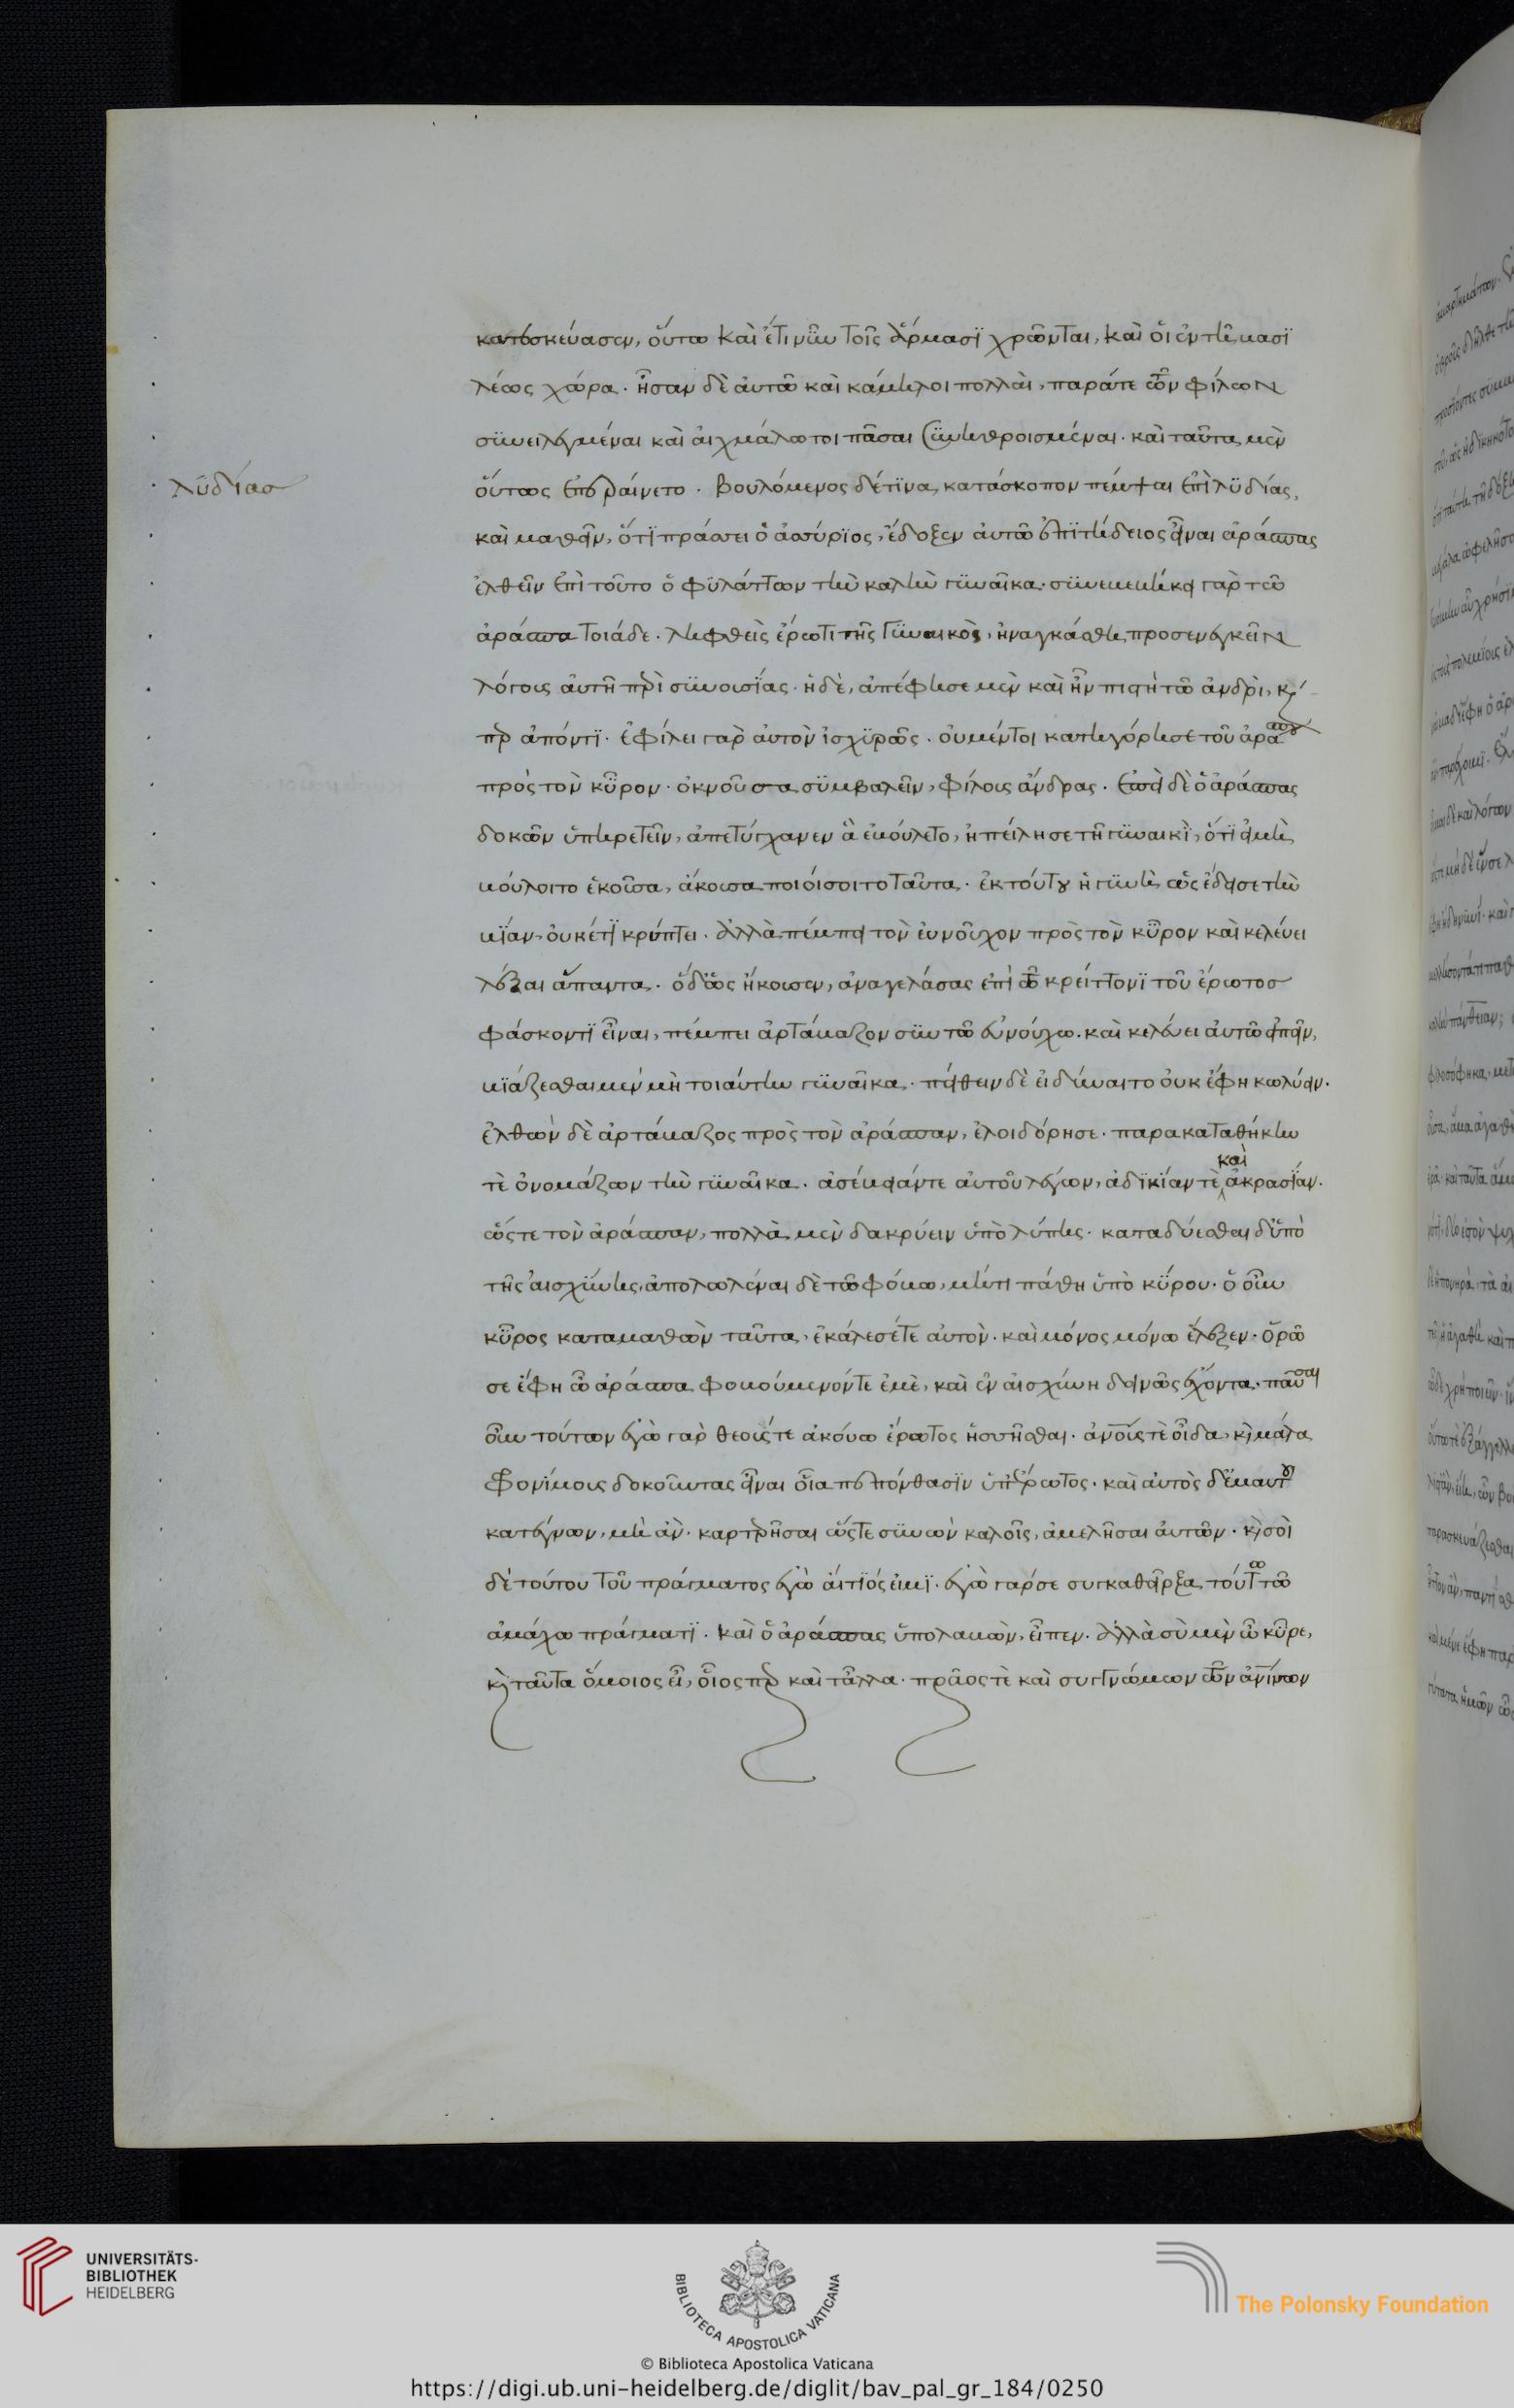 κατεσκεύασεν, οὕτω καὶ ἔτι νῦν τοῖς ἅρμασι χρῶνται, καὶ οἱ ἐν τῇ βασι
λέως χώρα. ἦσαν δὲ αὐτῶ καὶ κάμηλοι πολλαὶ, παρά τε τῶν φίλων
συνειλεγμέναι καὶ αἰχμάλωτοι πᾶσαι συνηθροισμέναι. καὶ ταῦτα μὲν
λυδίας
οὕτως ἐπεραίνετο. βουλόμενος δέ τινα κατάσκοπον πέμψαι ἐπὶ λυδίας,
καὶ μαθεῖν, ὅτι πράσσει ὁ ἀσσύριος, ἔδοξεν αὐτῶ ἐπιτήδειος εἶναι ἀράσπας
ἐλθεῖν ἐπὶ τοῦτο ὁ φυλάττων τὴν καλὴν γυναῖκα. συνεβεβήκει γὰρ τῶ
ἀράσπα τοιάδε. ληφθεὶς ἔρωτι τῆς γυναικὸς, ἠναγκάσθη προσενεγκεῖν
λόγους αὐτῇ περὶ συνουσίας. ἡ δὲ, ἀπέφησε μὲν καὶ ἦν πιστὴ τῶ ἀνδρὶ, καί
περ ἀπόντι. ἐφίλει γὰρ αὐτὸν ἰσχυρῶς. οὐ μέντοι κατηγόρησε τοῦ ἀράσπου
πρὸς τὸν κῦρον. ὀκνοῦσα συμβαλεῖν, φίλους ἄνδρας. ἐπεὶ δὲ ὁ ἀράσπας
δοκῶν ὑπηρετεῖν, ἀπετύγχανεν ἃ ἐβούλετο, ἠπείλησε τῇ γυναικὶ, ὅτι εἰ μὴ
βούλοιτο ἑκοῦσα, ἄκουσα ποιήσοι τοταῦτα. ἐκ τούτου ἡ γυνὴ, ὡς ἔδεισε τὴν
βίαν, οὐκέτι κρύπτει. ἀλλὰ πέμπει τὸν εὐνοῦχον πρὸς τὸν κῦρον καὶ κελεύει
λέξαι ἅπαντα. ὁ δ' ὡς ἤκουσεν, ἀναγελάσας ἐπὶ τῶ κρείττονι τοῦ ἔρωτος
φάσκοντι εἶναι, πέμπει ἀρτάβαζον σὺν τῶ εὐνούχω. καὶ κελεύει αὐτῶ εἰπεῖν,
βιάζεσθαι μὲν μὴ τοιαύτην γυναῖκα. πείθειν δὲ εἰ δύναιτο οὐκ ἔφη κωλύειν.
ἐλθὼν δὲ ἀρτάβαζος πρὸς τὸν ἀράσπαν, ἐλοιδόρησε. παρακαταθήκην
τὲ ὀνομάζων τὴν γυναῖκα. ἀσέβειάν τε αὐτοῦ λέγων, ἀδικίαν τὲ καὶ ἀκρασίαν.
ὥστε τὸν ἀράσπαν, πολλὰ μὲν δακρύειν ὑπὸ λύπης. καταδύεσθαι δ' ὑπὸ
τῆς αἰσχύνης, ἀπολωλέναι δὲ τῶ φόβω, μή τι πάθη ὑπὸ κύρου. ὁ οὖν
κῦρος καταμαθὼν ταῦτα, ἐκάλεσέ τε αὐτὸν. καὶ μόνος μόνω ἔλεξεν. ὁρῶ
σε ἔφη ὦ ἀράσπα φοβούμενόν τε ἐμὲ, καὶ ἐν αἰσχύνη δεινῶς ἔχοντα. παῦσαι
οὖν τούτων ἐγὼ γὰρ θεούς τε ἀκούω ἔρωτος ἡσυῆσθαι. ἀνούς τὲ οἶδα, καὶ μάλα
φρονίμους δοκοῦντας εἶναι οἷα πεπόνθασιν ὑπ' ἔρωτος. καὶ αὐτὸς δ' ἐμαυτοῦ
κατέγνων, μὴ ἂν. καρτερῆσαι ὥστε συνὼν καλοῖς, ἀμελῆσαι αὐτῶν. καὶ σοὶ
δὲ τούτου τοῦ πράγματος ἐγὼ αἴτιός εἰμι. ἐγὼ γάρ σε συγκαθεῖρξα τούτω τῶ
ἀμάχω πράγματι. καὶ ὁ ἀράσπας ὑπολαβὼν, εἶπεν. ἀλλὰ σὺ μὲν ὦ κῦρε,
καὶ ταῦτα ὅμοιος εἶ, οἷός περ καὶ τἆλλα. πρᾶος τὲ καὶ συγγνώμων τῶν ἀνίνων
UNIVERSITÄTS-
BIBLIOTHEK
HEIDELBERG
BIBLIOTECA APOSTOLICA VATICANA
The Polonsky Foundation
© Biblioteca Apostolica Vaticana
https://digi.ub.uni-heidelberg.de/diglit/bav_pal_gr_184/0250